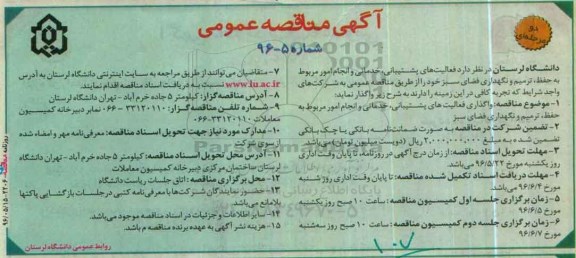 آگهی مناقصه عمومی
شماره ۵-۹۶
دانشگاه لرستان در نظر دارد فعالیت‌های پشتیبانی، خدماتی و انجام امور مربوط
به حفظ، ترمیم و نگهداری فضای سبز خود را از طریق مناقصه عمومی به شرکت‌های
واجد شرایط که تجربه کافی در این زمینه را دارند به شرح زیر واگذار نماید:
۱- موضوع مناقصه: واگذاری فعالیت های پشتیبانی، خدماتی و انجام امور مربوط به
حفظ، ترمیم و نگهداری فضای سبز
۲- تضمین شرکت در مناقصه به صورت ضمانت‌نامه بانکی یا چک بانکی
تضمین شده به مبلغ ۲,۰۰۰,۰۰۰,۰۰۰ ریال (دویست میلیون تومان) می‌باشد
۳- مهلت تحویل اسناد مناقصه: از زمان درج آگهی در روزنامه تا پایان وقت اداری
روز یکشنبه مورخ ۹۶/۵/۲۲ می باشد
۴- مهلت دریافت اسناد تکمیل شده مناقصه: تا پایان وقت اداری روز شنبه
مورخ ۹۶/۶/۴ می باشد
۵- زمان برگزاری جلسه اول کمیسیون مناقصه: ساعت ۱۰ صبح روز یکشنبه
مورخ ۹۶/۶/۵
۶- زمان برگزاری جلسه دوم کمیسیون مناقصه: ساعت ۱۰ صبح روز سه‌شنبه
مورخ ۹۶/۶/۷
۷- متقاضیان می توانند از طریق مراجعه به سایت اینترنتی دانشگاه لرستان به آدرس
www.lu.ac.ir نسبت به دریافت اسناد مناقصه اقدام نمایند.
۸- آدرس مناقصه‌گزار: کیلومتر ۵ جاده خرم آباد - تهران دانشگاه لرستان
۹- شماره تلفن مناقصه‌گزار: ۳۳۱۲۰۱۱۰ - ۰۶۶ نمابر دبیرخانه کمیسیون
معاملات ۳۳۱۲۰۱۱۰-۰۶۶
۱۰- مدارک مورد نیاز جهت تحویل اسناد مناقصه: معرفی‌نامه مهر و امضاء شده
از سوی شرکت
۱۱- آدرس محل تحویل اسناد مناقصه: کیلومتر ۵ جاده خرم آباد - تهران دانشگاه
لرستان ساختمان مرکزی دبیرخانه کمیسیون معاملات
۱۲- محل برگزاری مناقصه: اتاق جلسات ریاست دانشگاه
۱۳- حضور نمایندگان شرکت‌ها با معرفی‌نامه کتبی در جلسات بازگشایی پاکتها
بلامانع می باشد
۱۴- سایر اطلاعات و جزئیات در اسناد مناقصه موجود می‌باشد.
۱۵- هزینه نشر آگهی به عهده برنده مناقصه م باشد.
روابط عمومی دانشگاه لرستان
۱۰۷